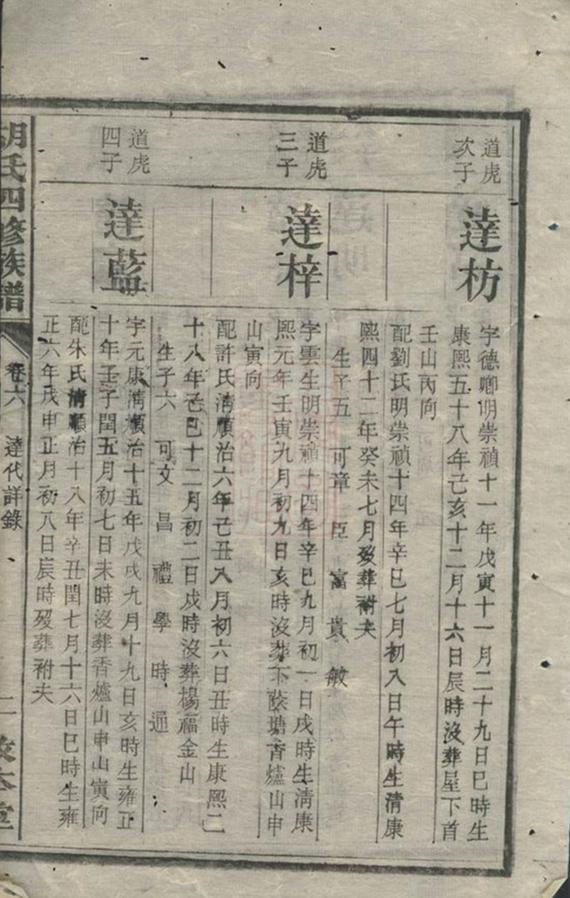 道虎
次子
達枋
字德卿明崇禎十一年戊寅十一月二十九日巳時生
康熙五十八年己亥十二月十六日辰時沒葬屋下首
壬山丙向
配劉氏明崇禎十四年辛巳七月初八日午時生清康
熙四十二年癸未七月歿葬祔夫
生子五 可章 臣 富 貴 敏
道虎
三子
達梓
字雲生明崇禎十四年辛巳九月初一日戌時生清康
熙元年壬寅九月初九日亥時沒葬下蔭塘香爐山申
山寅向
配許氏清順治六年己丑八月初六日丑時生康熙二
十八年己巳十二月初二日戌時沒葬楊福金山
生子六 可文 昌 禮 學 時 通
道虎
四子
達藍
字元康清順治十五年戊戌九月十九日亥時生雍正
十年壬子閏五月初七日未時沒葬香爐山申山寅向
配朱氏清順治十八年辛丑閏七月十六日巳時生雍
正六年戊申正月初八日辰時歿葬祔夫
胡氏四修族譜
卷六
達代詳錄